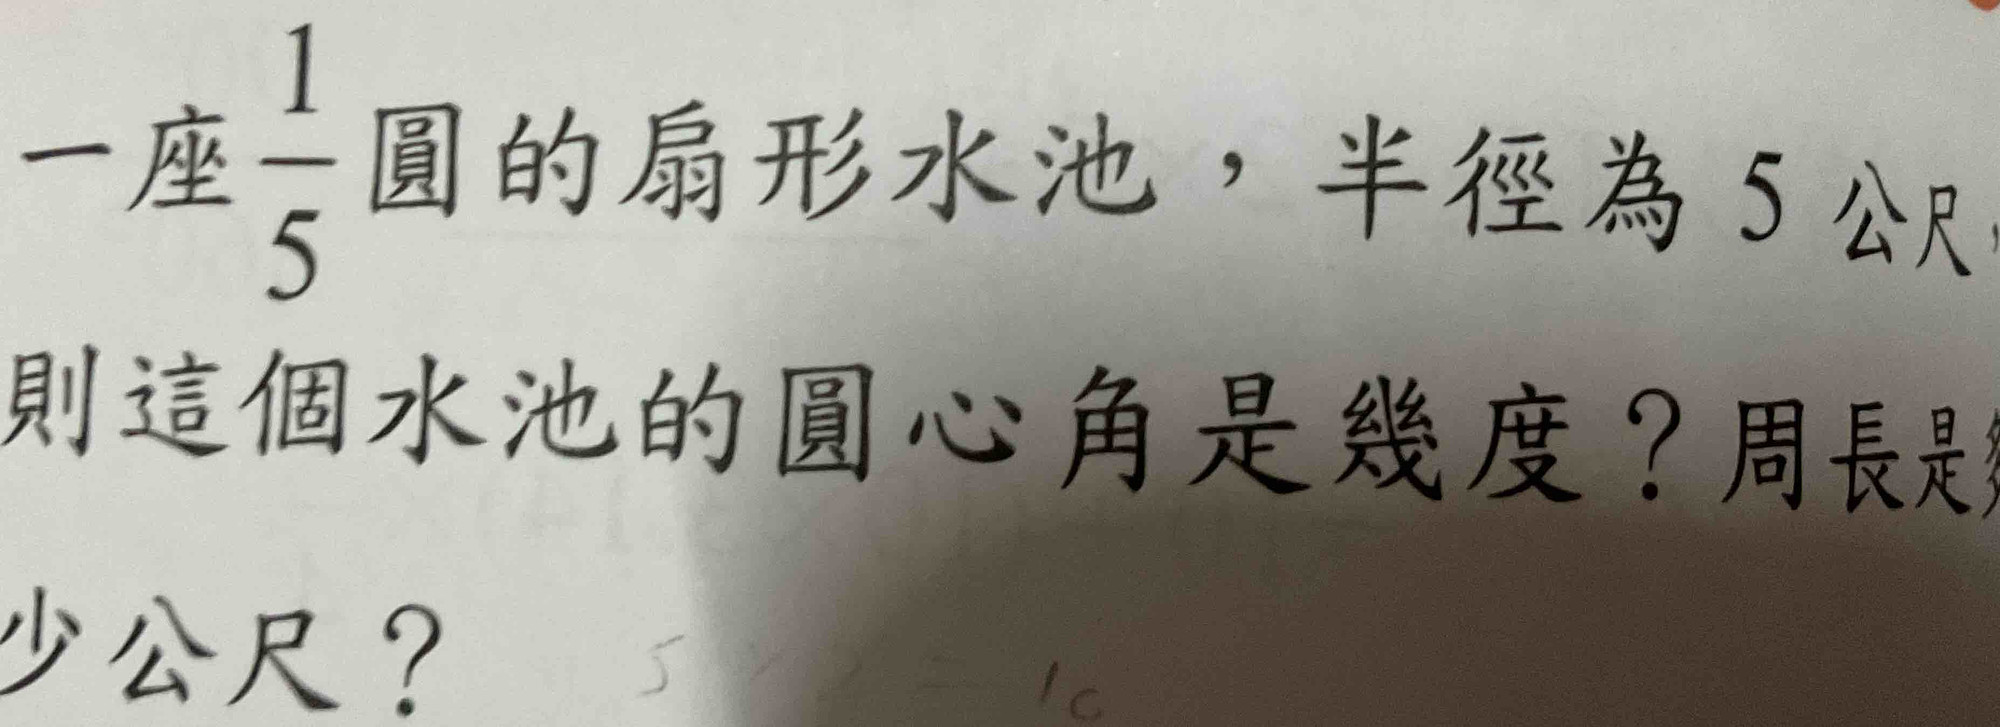 一座1/5圓的扇形水池，半徑為 5 公尺，
則這個水池的圓心角是幾度？周長是
少公尺？
5 × 2 = 10